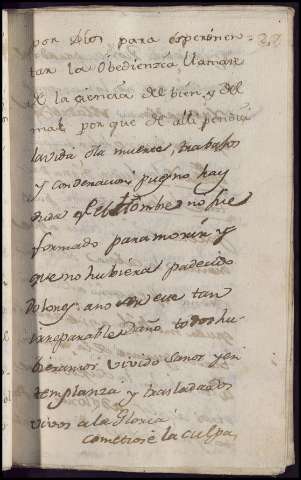 por Dios para esperimen= 28
tar la obedienzia llaman
la siencia del bien, y del
mal por que de alli pendia
la vida o la muerte, trabajos
y condenacion, pues no hay
duda q̃ el Hombre no fue
formado para morir y
que no hubiera padecido
Dolores; a no en tan
irreparable daño todos hu
bieramos vivido sanos y en
templanza y trasladados
vivos a la Gloria
cometiose la culpa,